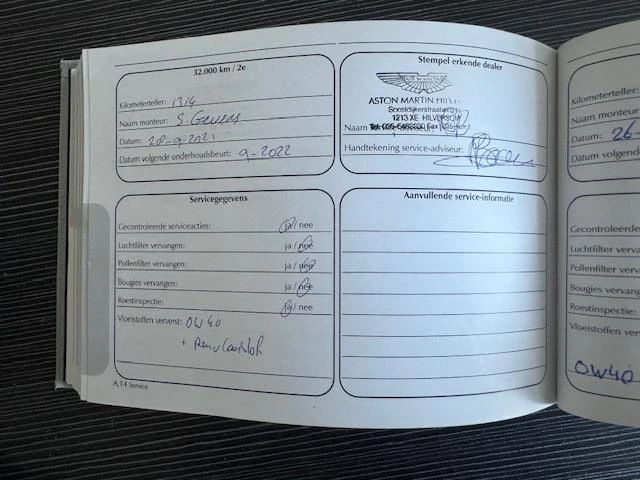 32.000 km / 2e
Kilometerteller: 1314
Naam monteur: S.
Datum: 28-9-2021
Datum volgende onderhoudsbeurt: 9-2022
Stempel erkende dealer
ASTON MARTIN
ASTON MARTIN HIL
Soestdijkerstraatweg
1213 XE HILVERSUM
Naam
Handtekening service-adviseur:
Servicegegevens
Gecontroleerde serviceacties: ja / nee
Luchtfilter vervangen: ja / nee
Pollenfilter vervangen: ja / nee
Bougies vervangen: ja / nee
Roestinspectie: ja / nee
Vloeistoffen ververst: OW40
+ Remvloeistof
A.14 Service
Aanvullende service-informatie
Kilometerteller:
Naam monteur
Datum: 26
Datum volgende
Gecontroleerde
Luchtfilter verv
Pollenfilter verv
Bougies vervang
Roestinspectie:
Vloeistoffen ver
OW40